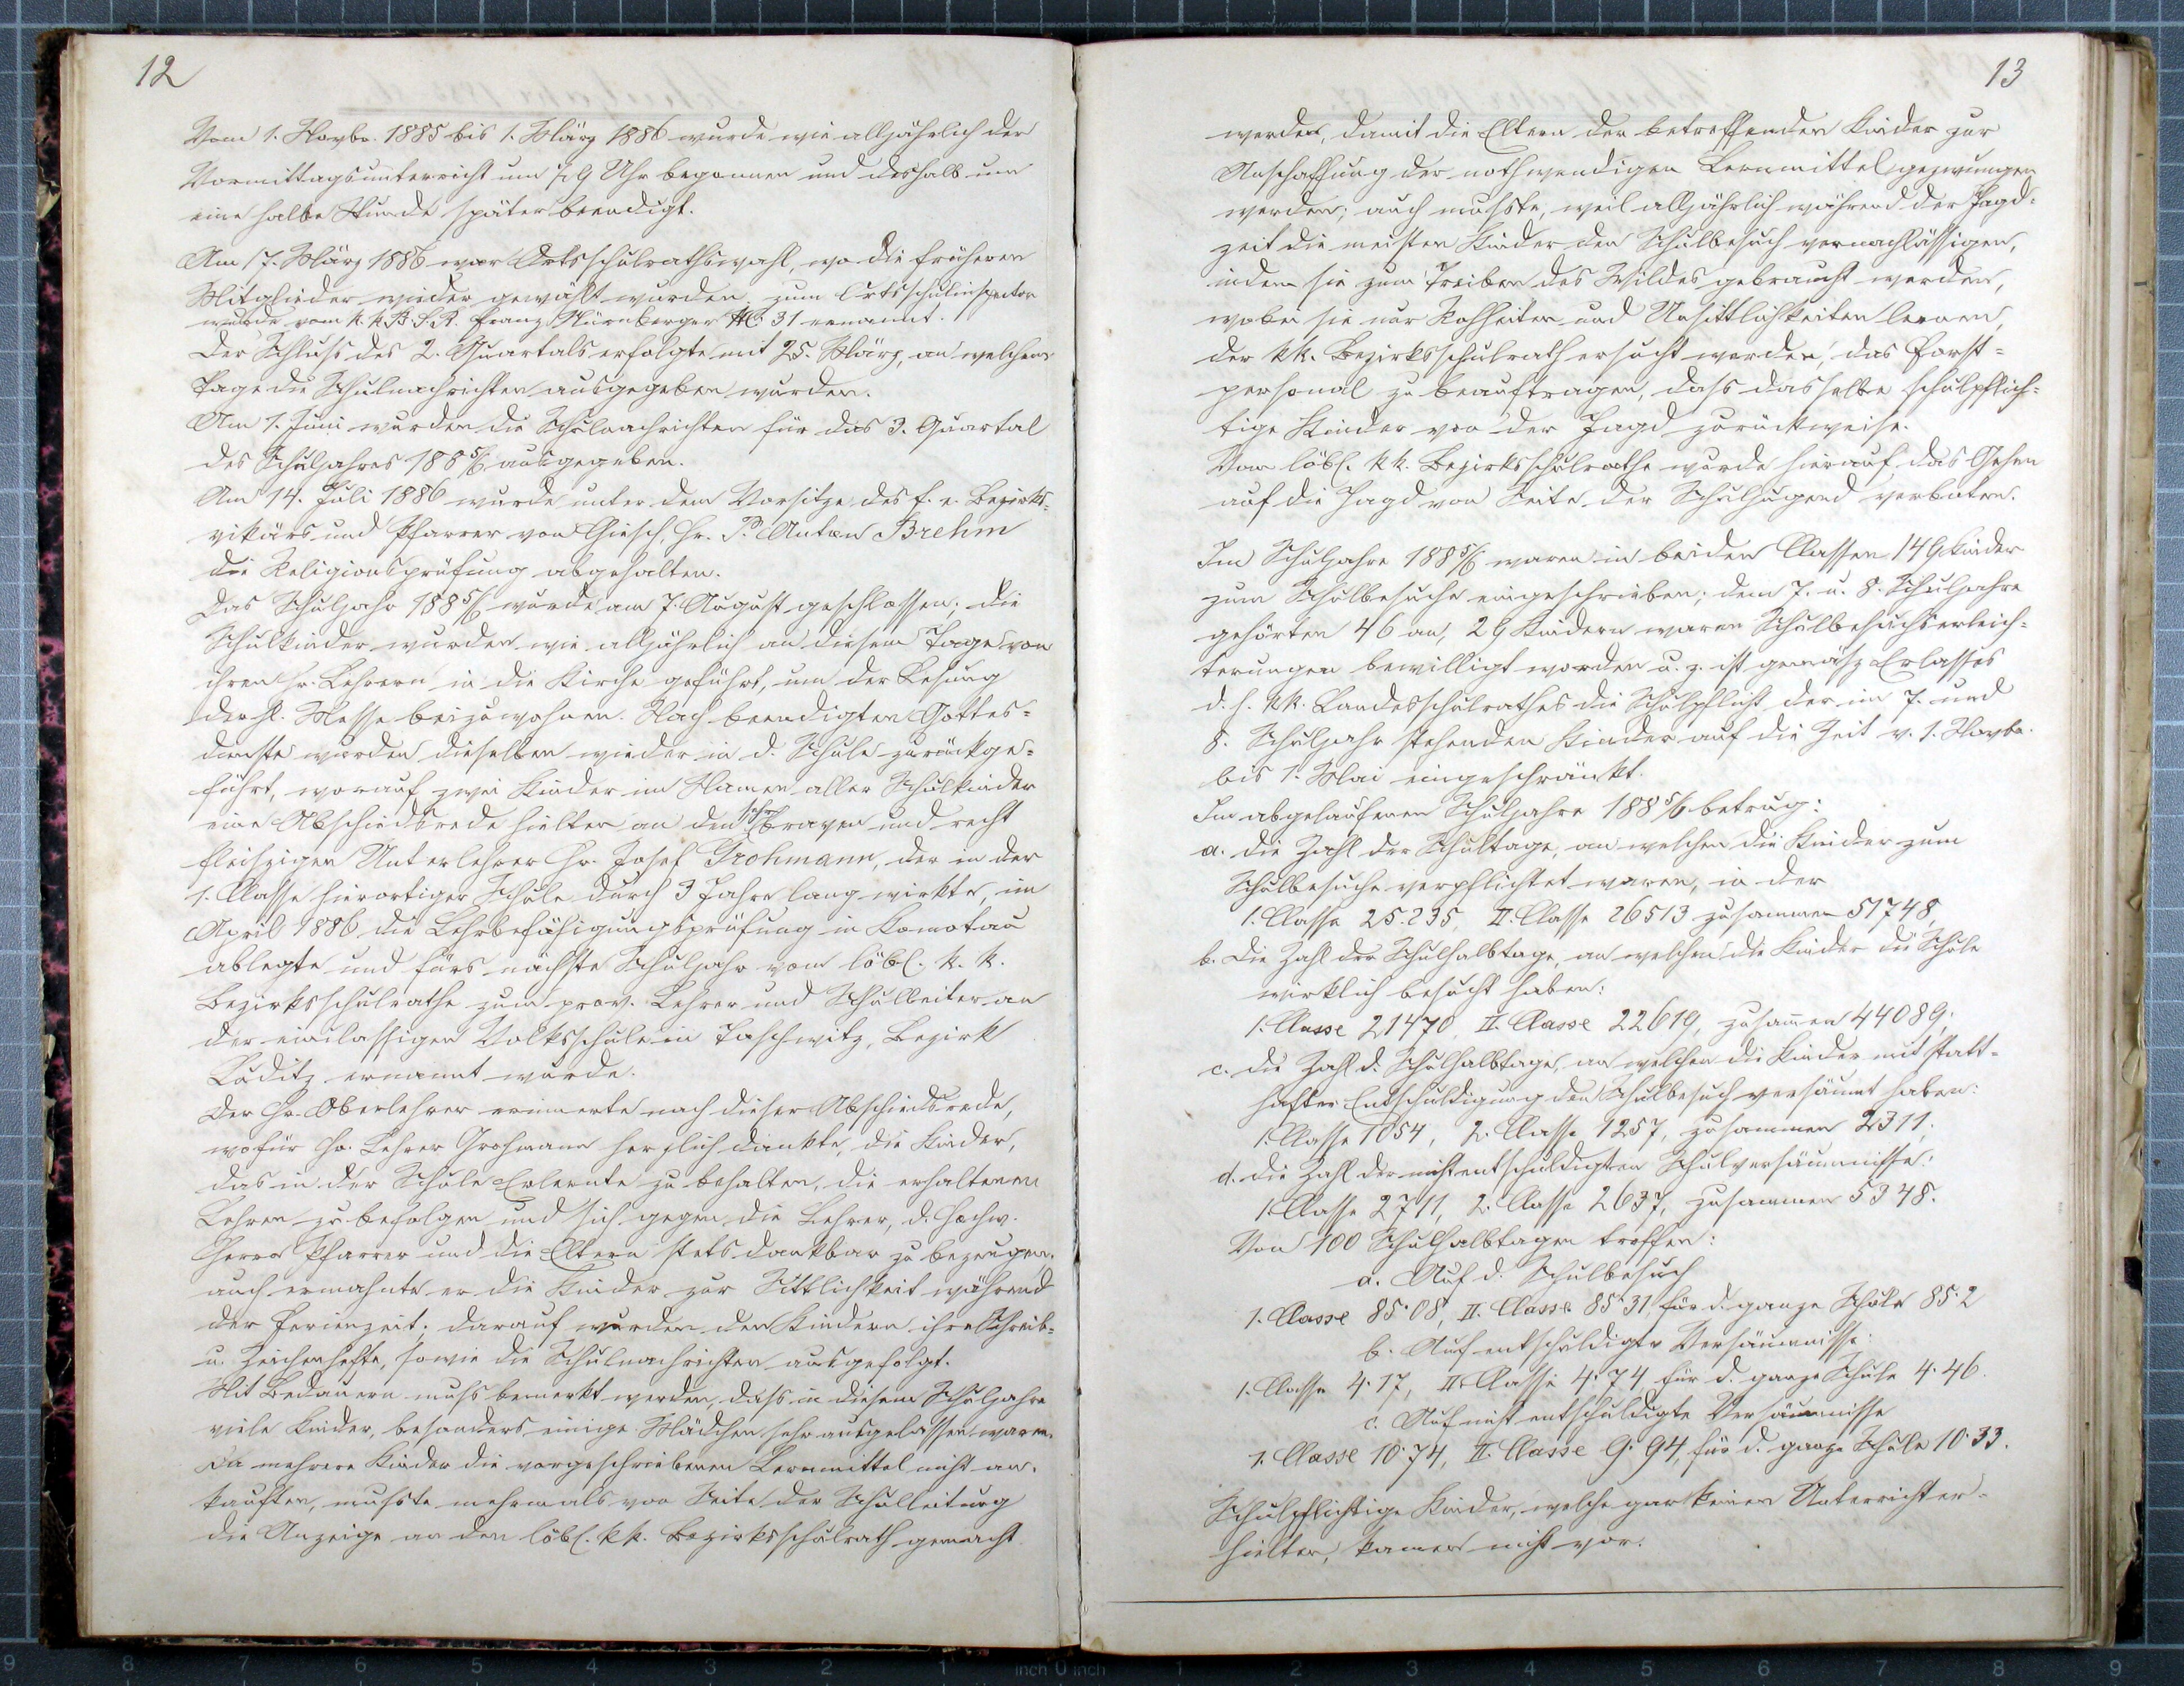 12
Vom 1. Novbr. 1885 bis 1. März 1886 wurde wie alljährlich der
Vormittagsunterricht um ½9 Uhr begonnen und deshalb um
eine halbe Stunde später beendigt.
Am 17. März 1886 war Ortsschulrathswahl, wo die früheren
Mitglieder wieder gewählt wurden; zum Ortsschulinspector
wurde vom k. k. B. S. R. Franz Nürnberger Nr. 31 ernannt.
Der Schluss des 2. Quartals erfolgte mit 25. März, an welchem
Tage die Schulnachrichten ausgegeben wurden.
Am 1. Juni wurden die Schulnachrichten für das 3. Quartal
des Schuljahres 1885/6 ausgegeben.
Am 14. Juli 1886 wurde unter dem Vorsitze des f. e. Bezirks-
vikärs und Pfarrer von Chiesch, Hr. P. Anton Brehm
die Religionsprüfung abgehalten.
Das Schuljahr 1885/6 wurde am 7. August geschlossen; die
Schulkinder wurden wie alljährlich an diesem Tage von
ihren Hr. Lehrern in die Kirche geführt, um der Lesung
der hl. Messe beizuwohnen. Nach beendigtem Gottes-
dienste wurden dieselben wieder in d. Schule zurückge-
führt, worauf zwei Kinder im Namen aller Schulkinder
eine Abschiedsrede hielten an den sehr braven und recht
fleißigen Unterlehrer Hr. Josef Grohmann, der in der
1. Classe hierortiger Schule durch 3 Jahre lang wirkte, im
April 1886 die Lehrbefähigungsprüfung in Komotau
ablegte und fürs nächste Schuljahr vom löbl. k. k.
Bezirksschulrathe zum prov. Lehrer und Schulleiter an
der einclassigen Volksschule in Taschwitz, Bezirk
Luditz ernannt wurde.
Der Hr. Oberlehrer erinnerte nach dieser Abschiedsrede,
wofür Hr. Lehrer Grohmann herzlich dankte, die Kinder,
das in der Schule Erlernte zu behalten, die erhaltenen
Lehren zu befolgen und sich gegen die Lehrer, d. Hochw.
Herrn Pfarrer und die Eltern stets dankbar zu bezeugen,
auch ermahnte er die Kinder zur Sittlichkeit während
der Ferienzeit; darauf wurden den Kindern ihre Schreib-
u. Zeichenhefte, sowie die Schulnachrichten ausgefolgt.
Mit Bedauern muss bemerkt werden, dass in diesem Schuljahre
viele Kinder, besonders einige Mädchen sehr ausgelassen waren.
Da mehrere Kinder die vorgeschriebenen Lernmittel nicht an-
kauften, musste mehrmals von Seite der Schulleitung
die Anzeige an den löbl. k k. Bezirksschulrath gemacht
13
werden, damit die Eltern der betreffenden Kinder zur
Anschaffung der nothwendigen Lernmittel gezwungen
werden; auch musste, weil alljährlich während der Jagd-
zeit die meisten Kinder den Schulbesuch vernachlässigen,
indem sie zum Treiben des Wildes gebraucht werden,
wobei sie nur Rohheiten und Unsittlichkeiten lernen,
der k k. Bezirksschulrath ersucht werden, das Forst-
personal zu beauftragen, dass dasselbe schulpflich-
tige Kinder von der Jagd zurückweise.
Vom löbl. k k. Bezirksschulrathe wurde hierauf das Gehen
auf die Jagd von Seite der Schuljugend verboten.
Im Schuljahre 1885/6 waren in beiden Classen 149 Kinder
zum Schulbesuche eingeschrieben; dem 7. u. 8. Schuljahre
gehörten 46 an, 29 Kindern waren Schulbesuchserleich-
terungen bewilligt worden u. z. ist gemäß Erlasses
d. h. k k. Landesschulrathes die Schulpflicht der im 7. und
8. Schuljahr stehenden Kinder auf die Zeit v. 1. Novbr.
bis 1. Mai eingeschränkt.
Im abgelaufenen Schuljahre 1885/6 betrug:
a. die Zahl der Schultage, an welchen die Kinder zum
Schulbesuche verpflichtet waren, in der
1. Classe 25.235, II. Classe 26513 zusammen 51748,
b. Die Zahl der Schulhalbtage, an welchen die Kinder die Schule
wirklich besucht haben:
1. Classe 21470, II. Classe 22619, zusammen 44089;
c. die Zahl d. Schulhalbtage, an welchen die Kinder mit statt-
hafter Entschuldigung den Schulbesuch versäumt haben:
1. Classe 1054, 2. Classe 1257, zusammen 2311;
d. die Zahl der nichtentschuldigten Schulversäumnisse:
1. Classe 2711, 2. Classe 2637, zusammen 5348.
Von 100 Schulhalbtagen treffen:
a. Auf d. Schulbesuch
1. Classe 85.08, II. Classe 85.31, für d. ganze Schule 85.2
b. Auf entschuldigte Versäumnisse:
1. Classe 4.17, II. Classe 4.74 für d. ganze Schule 4.46.
c. Auf nicht entschuldigte Versäumnisse
1. Classe 10.74, II. Classe 9.94, für d. ganze Schule 10.33.
Schulpflichtige Kinder, welche gar keinen Unterricht er-
hielten, kamen nicht vor.
9 8 7 6 5 4 3 2 1 inch 0 inch 1 2 3 4 5 6 7 8 9